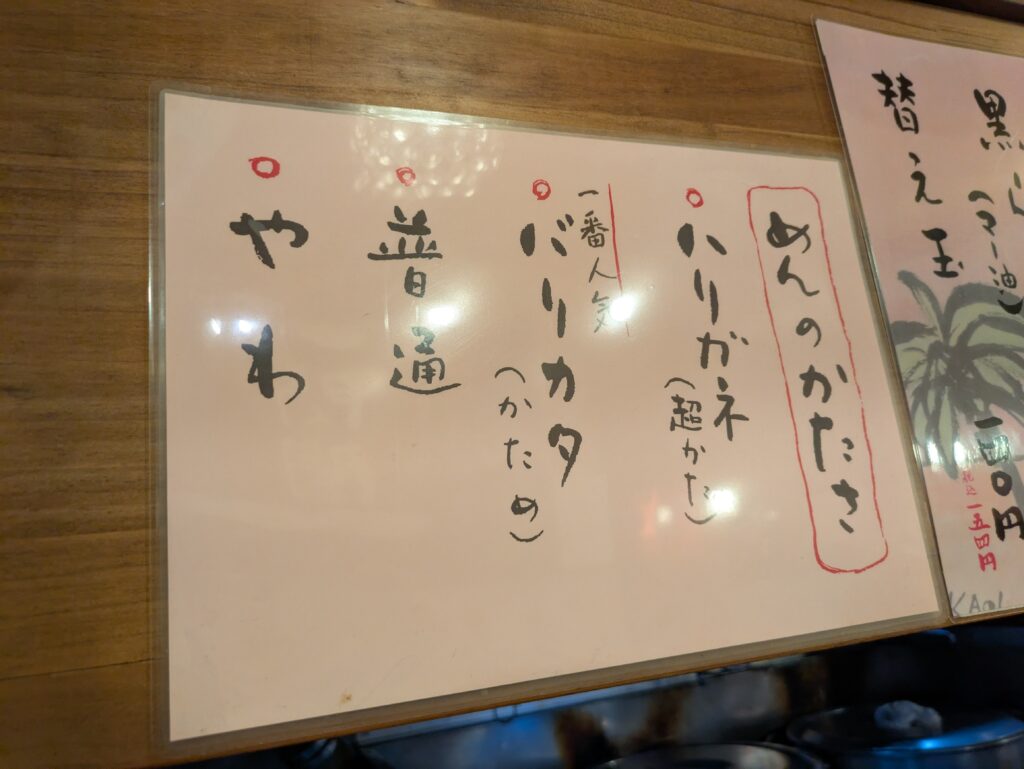 黒
(マー油)
替え玉
一四〇円
税込一五四円
めんのかたさ
ハリガネ
(超かた)
一番人気
バリカタ
(かため)
普通
やわ